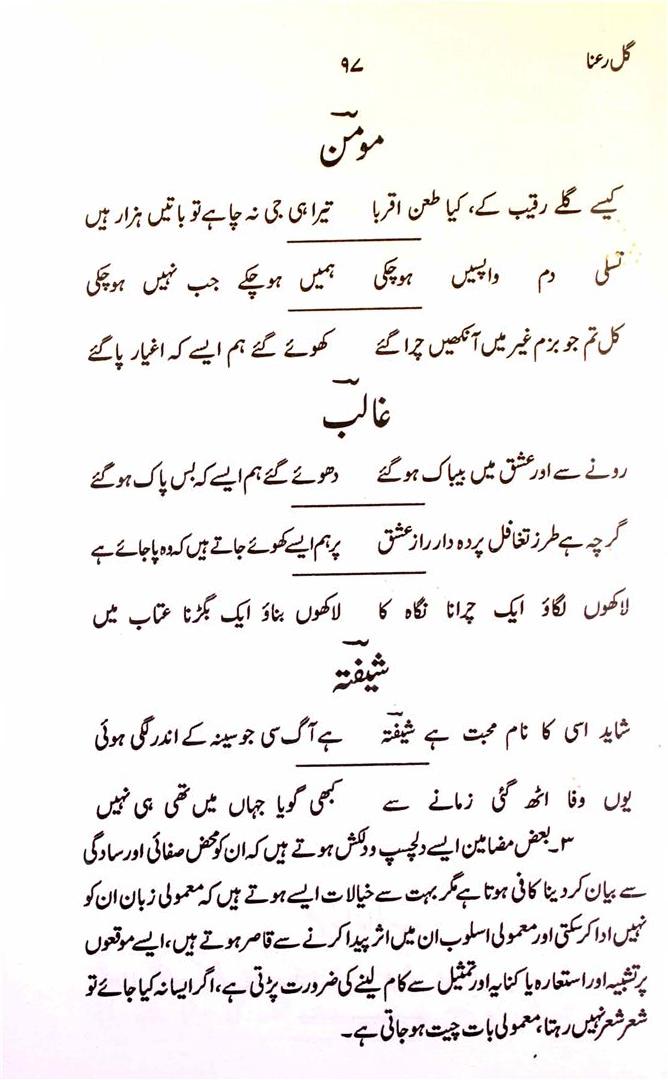 گل رعنا ۹۷
مومنؔ
کیسے گلے رقیب کے، کیا طعن اقربا تیرا ہی جی نہ چاہے تو باتیں ہزار ہیں
تسلی دم واپسیں ہوچکی ہمیں ہوچکے جب نہیں ہوچکی
کل تم جو بزم غیر میں آنکھیں چرا گئے کھوئے گئے ہم ایسے کہ اغیار پا گئے
غالبؔ
رونے سے اور عشق میں بیباک ہوگئے دھوئے گئے ہم ایسے کہ بس پاک ہوگئے
گرچہ ہے طرز تغافل پردہ دار راز عشق پر ہم ایسے کھوئے جاتے ہیں کہ وہ پا جائے ہے
لاکھوں لگاؤ ایک چرانا نگاہ کا لاکھوں بناؤ ایک بگڑنا عتاب میں
شیفتہؔ
شاید اسی کا نام محبت ہے شیفتہؔ ہے آگ سی جو سینہ کے اندر لگی ہوئی
یوں وفا اٹھ گئی زمانے سے کبھی گویا جہاں میں تھی ہی نہیں
۳۔ بعض مضامین ایسے دلچسپ و دلکش ہوتے ہیں کہ ان کو محض صفائی اور سادگی
سے بیان کردینا کافی ہوتا ہے مگر بہت سے خیالات ایسے ہوتے ہیں کہ معمولی زبان ان کو
نہیں ادا کرسکتی اور معمولی اسلوب ان میں اثر پیدا کرنے سے قاصر ہوتے ہیں، ایسے موقعوں
پر تشبیہ اور استعارہ یا کنایہ اور تمثیل سے کام لینے کی ضرورت پڑتی ہے، اگر ایسا نہ کیا جائے تو
شعر شعر نہیں رہتا، معمولی بات چیت ہوجاتی ہے۔